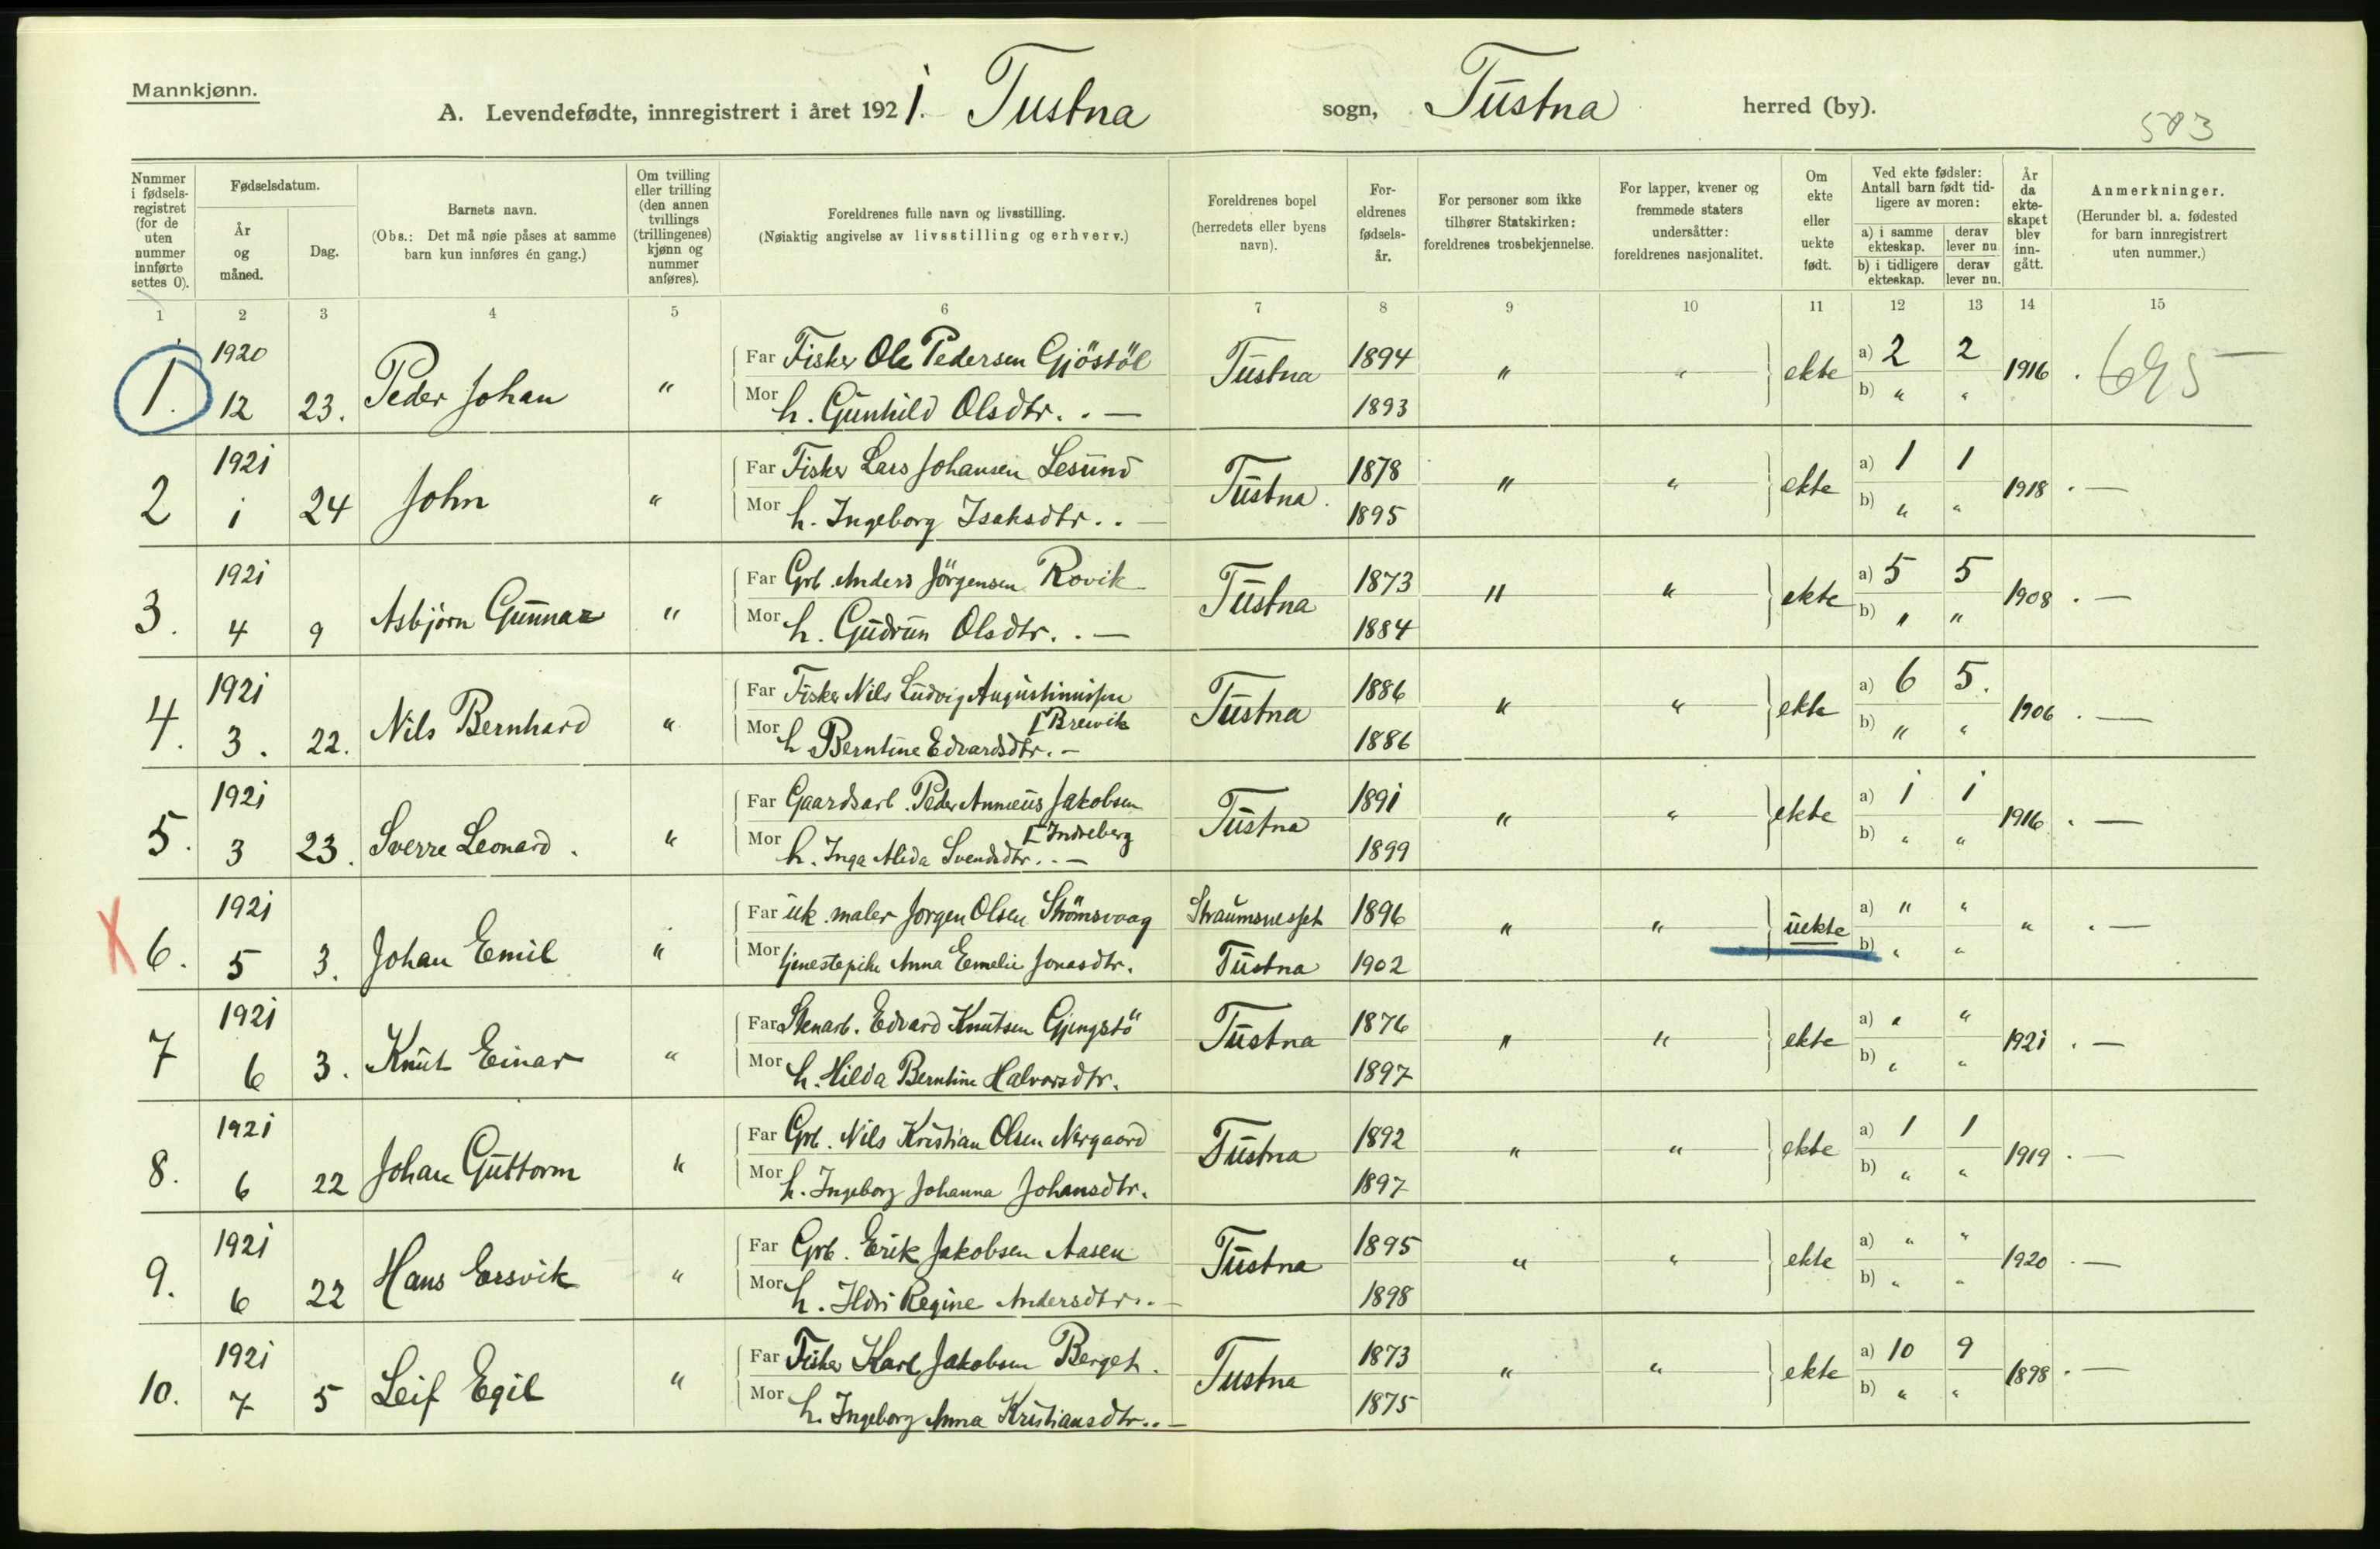 Mannkjønn.
A. Levendefødte, innregistrert i året 1921. Tustna sogn, Tustna herred (by).
583
Nummer i fødselsregistret (for de uten nummer innførte settes 0).
Fødselsdatum.
År og måned.
Dag.
Barnets navn.
(Obs.: Det må nøie påses at samme barn kun innføres én gang.)
Om tvilling eller trilling (den annen tvillings (trillingenes) kjønn og nummer anføres).
Foreldrenes fulle navn og livsstilling.
(Nøiaktig angivelse av livsstilling og erhverv.)
Foreldrenes bopel (herredets eller byens navn).
Foreldrenes fødselsår.
For personer som ikke tilhører Statskirken: foreldrenes trosbekjennelse.
For lapper, kvener og fremmede staters undersåtter: foreldrenes nasjonalitet.
Om ekte eller uekte født.
Ved ekte fødsler: Antall barn født tidligere av moren:
a) i samme ekteskap. derav lever nu.
b) i tidligere ekteskap. derav lever nu.
År da ekteskapet blev inngått.
Anmerkninger.
(Herunder bl. a. fødested for barn innregistrert uten nummer.)
1 2 3 4 5 6 7 8 9 10 11 12 13 14 15
1920 Far Fisker Ole Pedersen Gjöstöl 1894 a) 2 2
1. 12 23. Peder Johan " Tustna " " ekte 1916 . 695 —
Mor h. Gunhild Olsdtr. . — 1893 b) " "
1921 Far Fisker Lars Johansen Lesund 1878 a) 1 1
2 1 24 John " Tustna. " " ekte 1918 . —
Mor h. Ingeborg Isaksdtr. . — 1895 b) " "
1921 Far Grb. Anders Jörgensen Rovik 1873 a) 5 5
3. 4 9 Asbjørn Gunnar " Tustna " " ekte 1908 . —
Mor h. Gudrun Olsdtr. . — 1884 b) " "
1921 Far Fisker Nils Ludvig Augustinussen 1886 a) 6 5.
[Brewik
4. 3. 22. Nils Bernhard " Tustna " " ekte 1906 . —
Mor h Berntine Edvardsdtr. — 1886 b) " "
1921 Far Gaardsarb. Peder Annæus Jakobsen 1891 a) 1 1
[Indreberg
5. 3 23. Sverre Leonard. " Tustna " " ekte 1916 . —
Mor h. Inga Alida Svendsdtr. . — 1899 b) " "
1921 Far uk. maler Jorgen Olsen Strömsvaag Straumsnesset 1896 a) " "
X 6. 5 3. Johan Emil " " " uekte " . —
Mor tjenestepike Anna Emelie Jonasdtr. Tustna 1902 b) " "
1921 Far Stenarb. Edvard Knutsen Gjengstö 1876 a) " "
7 6 3. Knut Einar " Tustna " " ekte 1921 . —
Mor h. Hilda Berntine Halvorsdtr. 1897 b) " "
1921 Far Grb. Nils Kristian Olsen Nergaard 1892 a) 1 1
8. 6 22 Johan Guttorm " Tustna " " ekte 1919 . —
Mor h. Ingeborg Johanna Johansdtr. 1897 b) " "
1921 Far Grb. Erik Jakobsen Aasen 1895 a) " "
9. 6 22 Hans Ersvik " Tustna " " ekte 1920 . —
Mor h. Ildri Regine Andersdtr. . — 1898 b) " "
1921 Far Fisker Karl Jakobsen Berget. 1873 a) 10 9
10. 7 5 Leif Egil " Tustna " " ekte 1898 . —
Mor h. Ingeborg Anna Kristiansdtr. . — 1875 b) " "